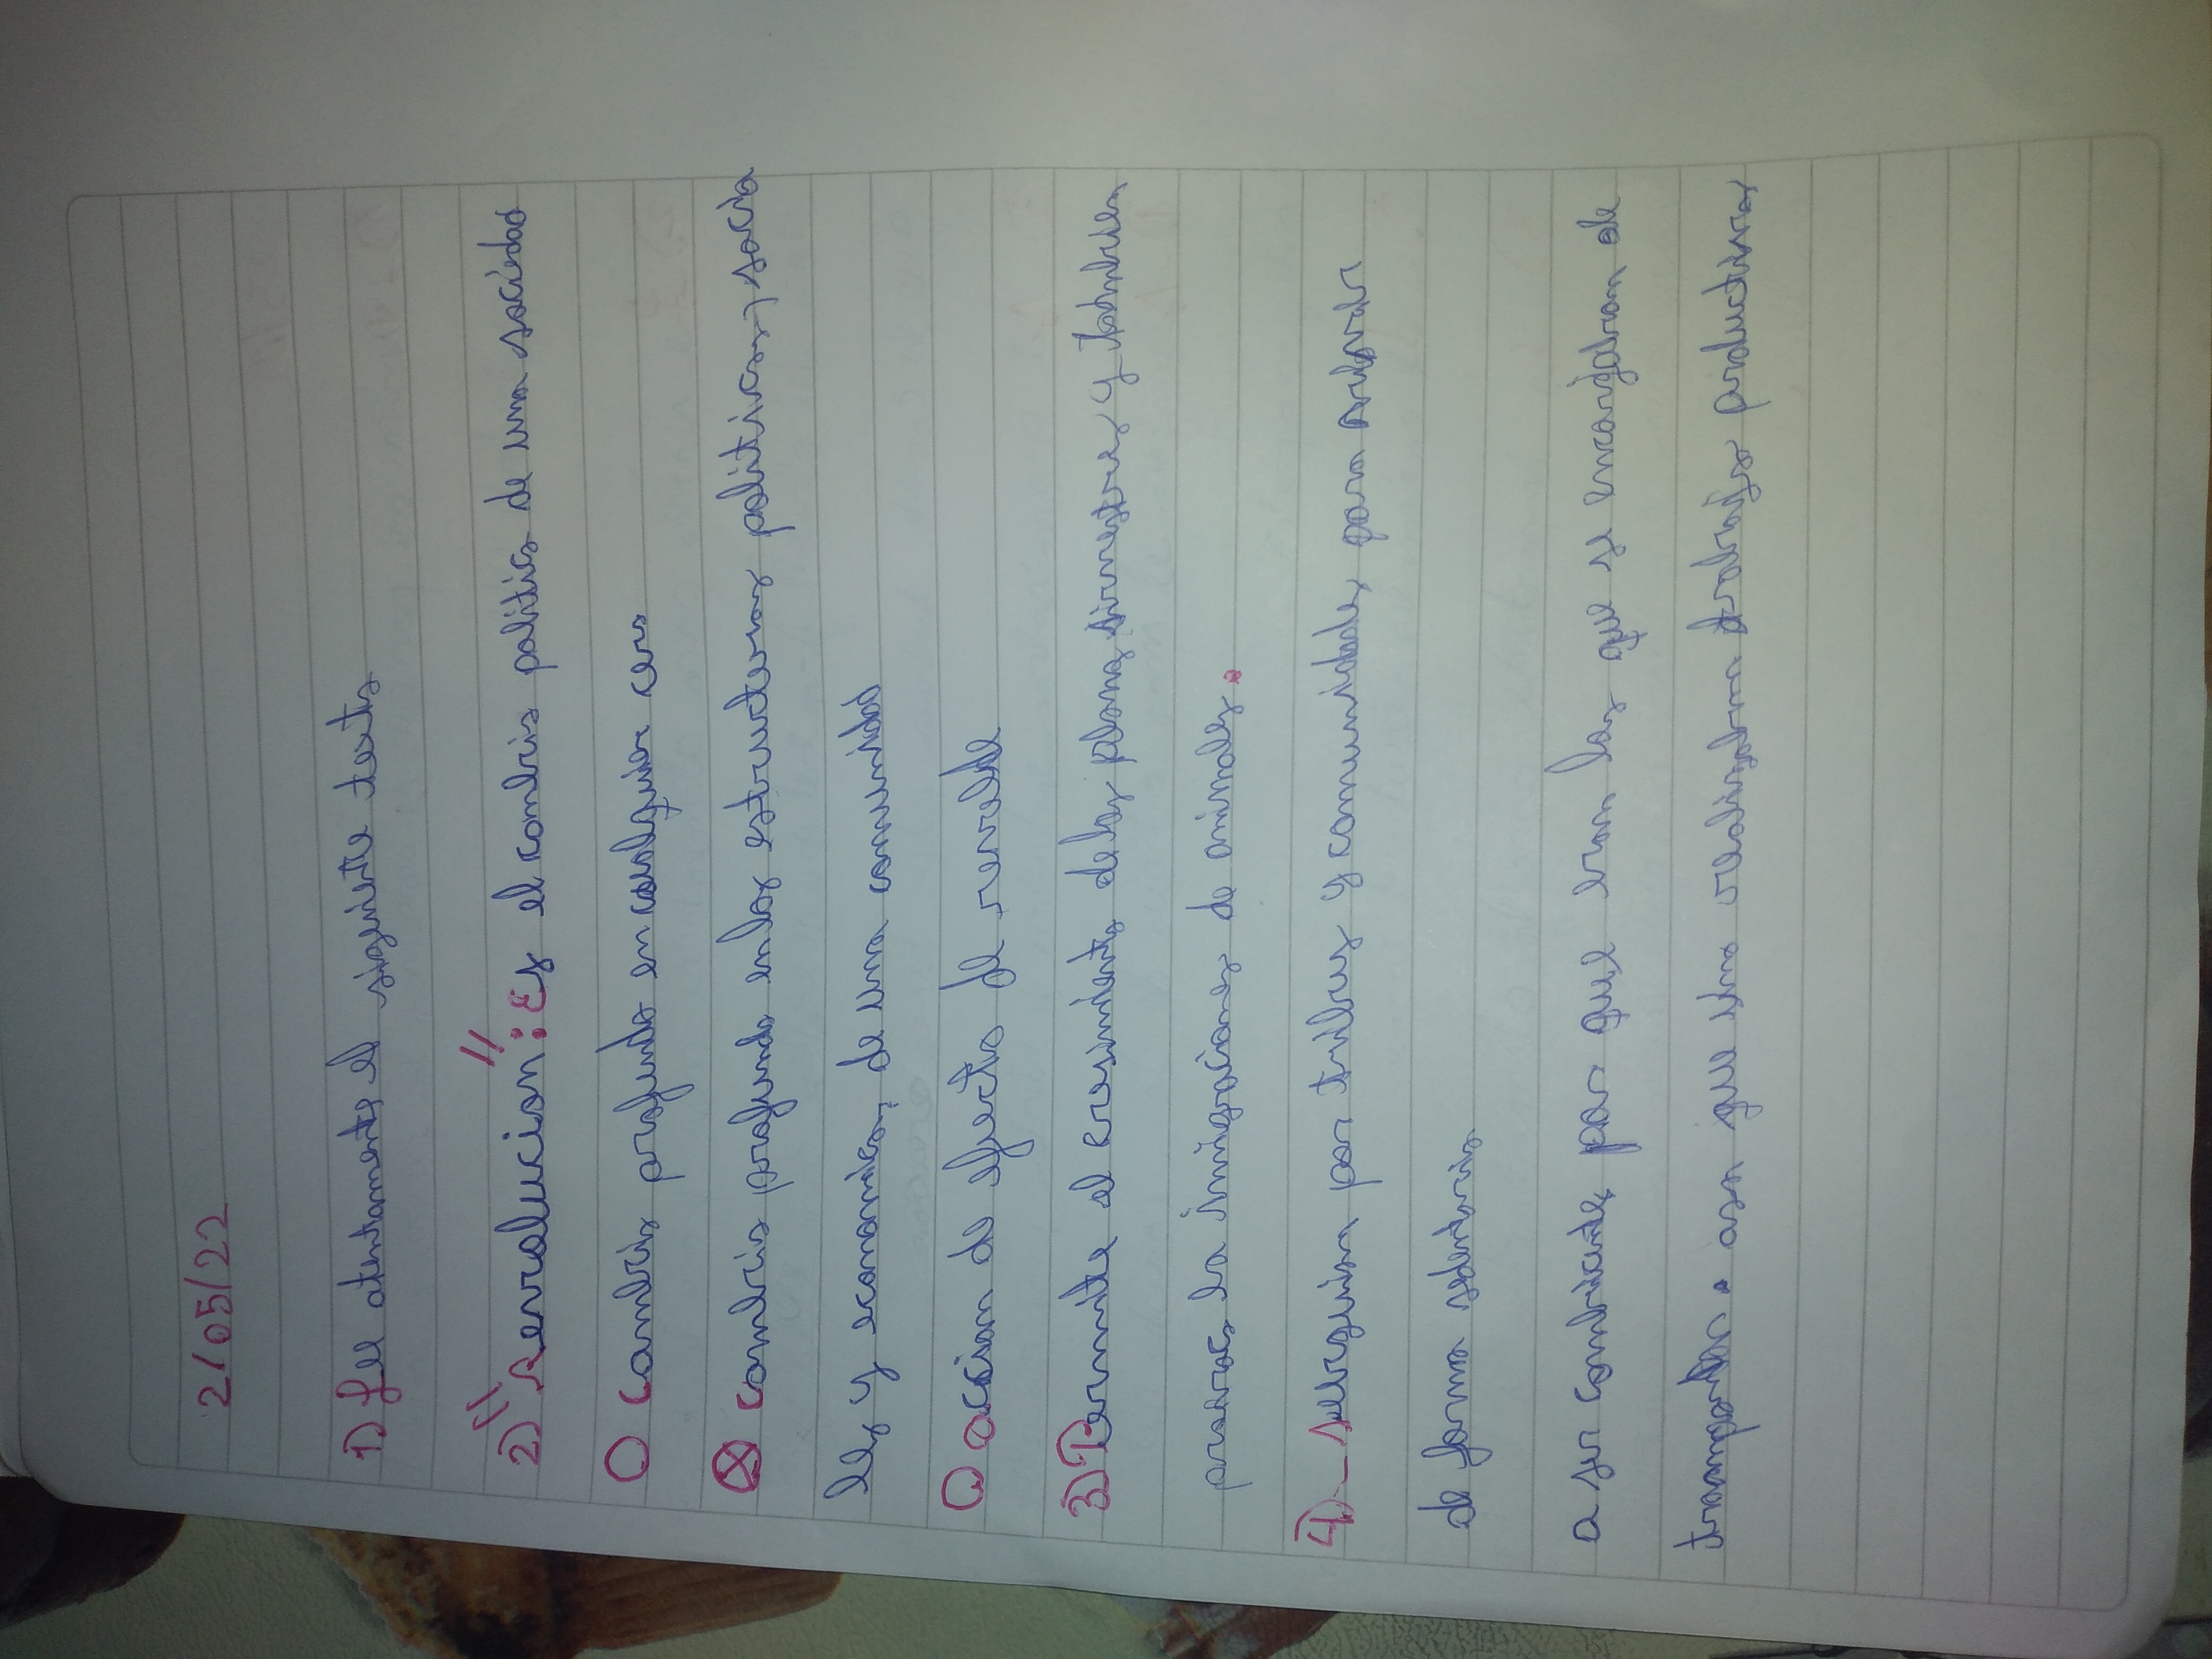 2/05/22
1) Lee atentamente el siguiente texto
2) "Revolucion": Es el cambio politico de una sociedad
○ Cambio profundo en cualquier cosa
⊗ cambio profundo en las estructuras politicas, socia
les y economicas, de una comunidad
○ accion de efecto de revelde
3) Permite el cresimiento de las plantas sirvestres y tambien
provoca la inmigraciones de animales.
4) - surguieron por tribus y comunidades para
de forma sedentaria
a ser cambiante por que eran las que se encargaban de
transportar. asa que una realizaban trabajos productivos